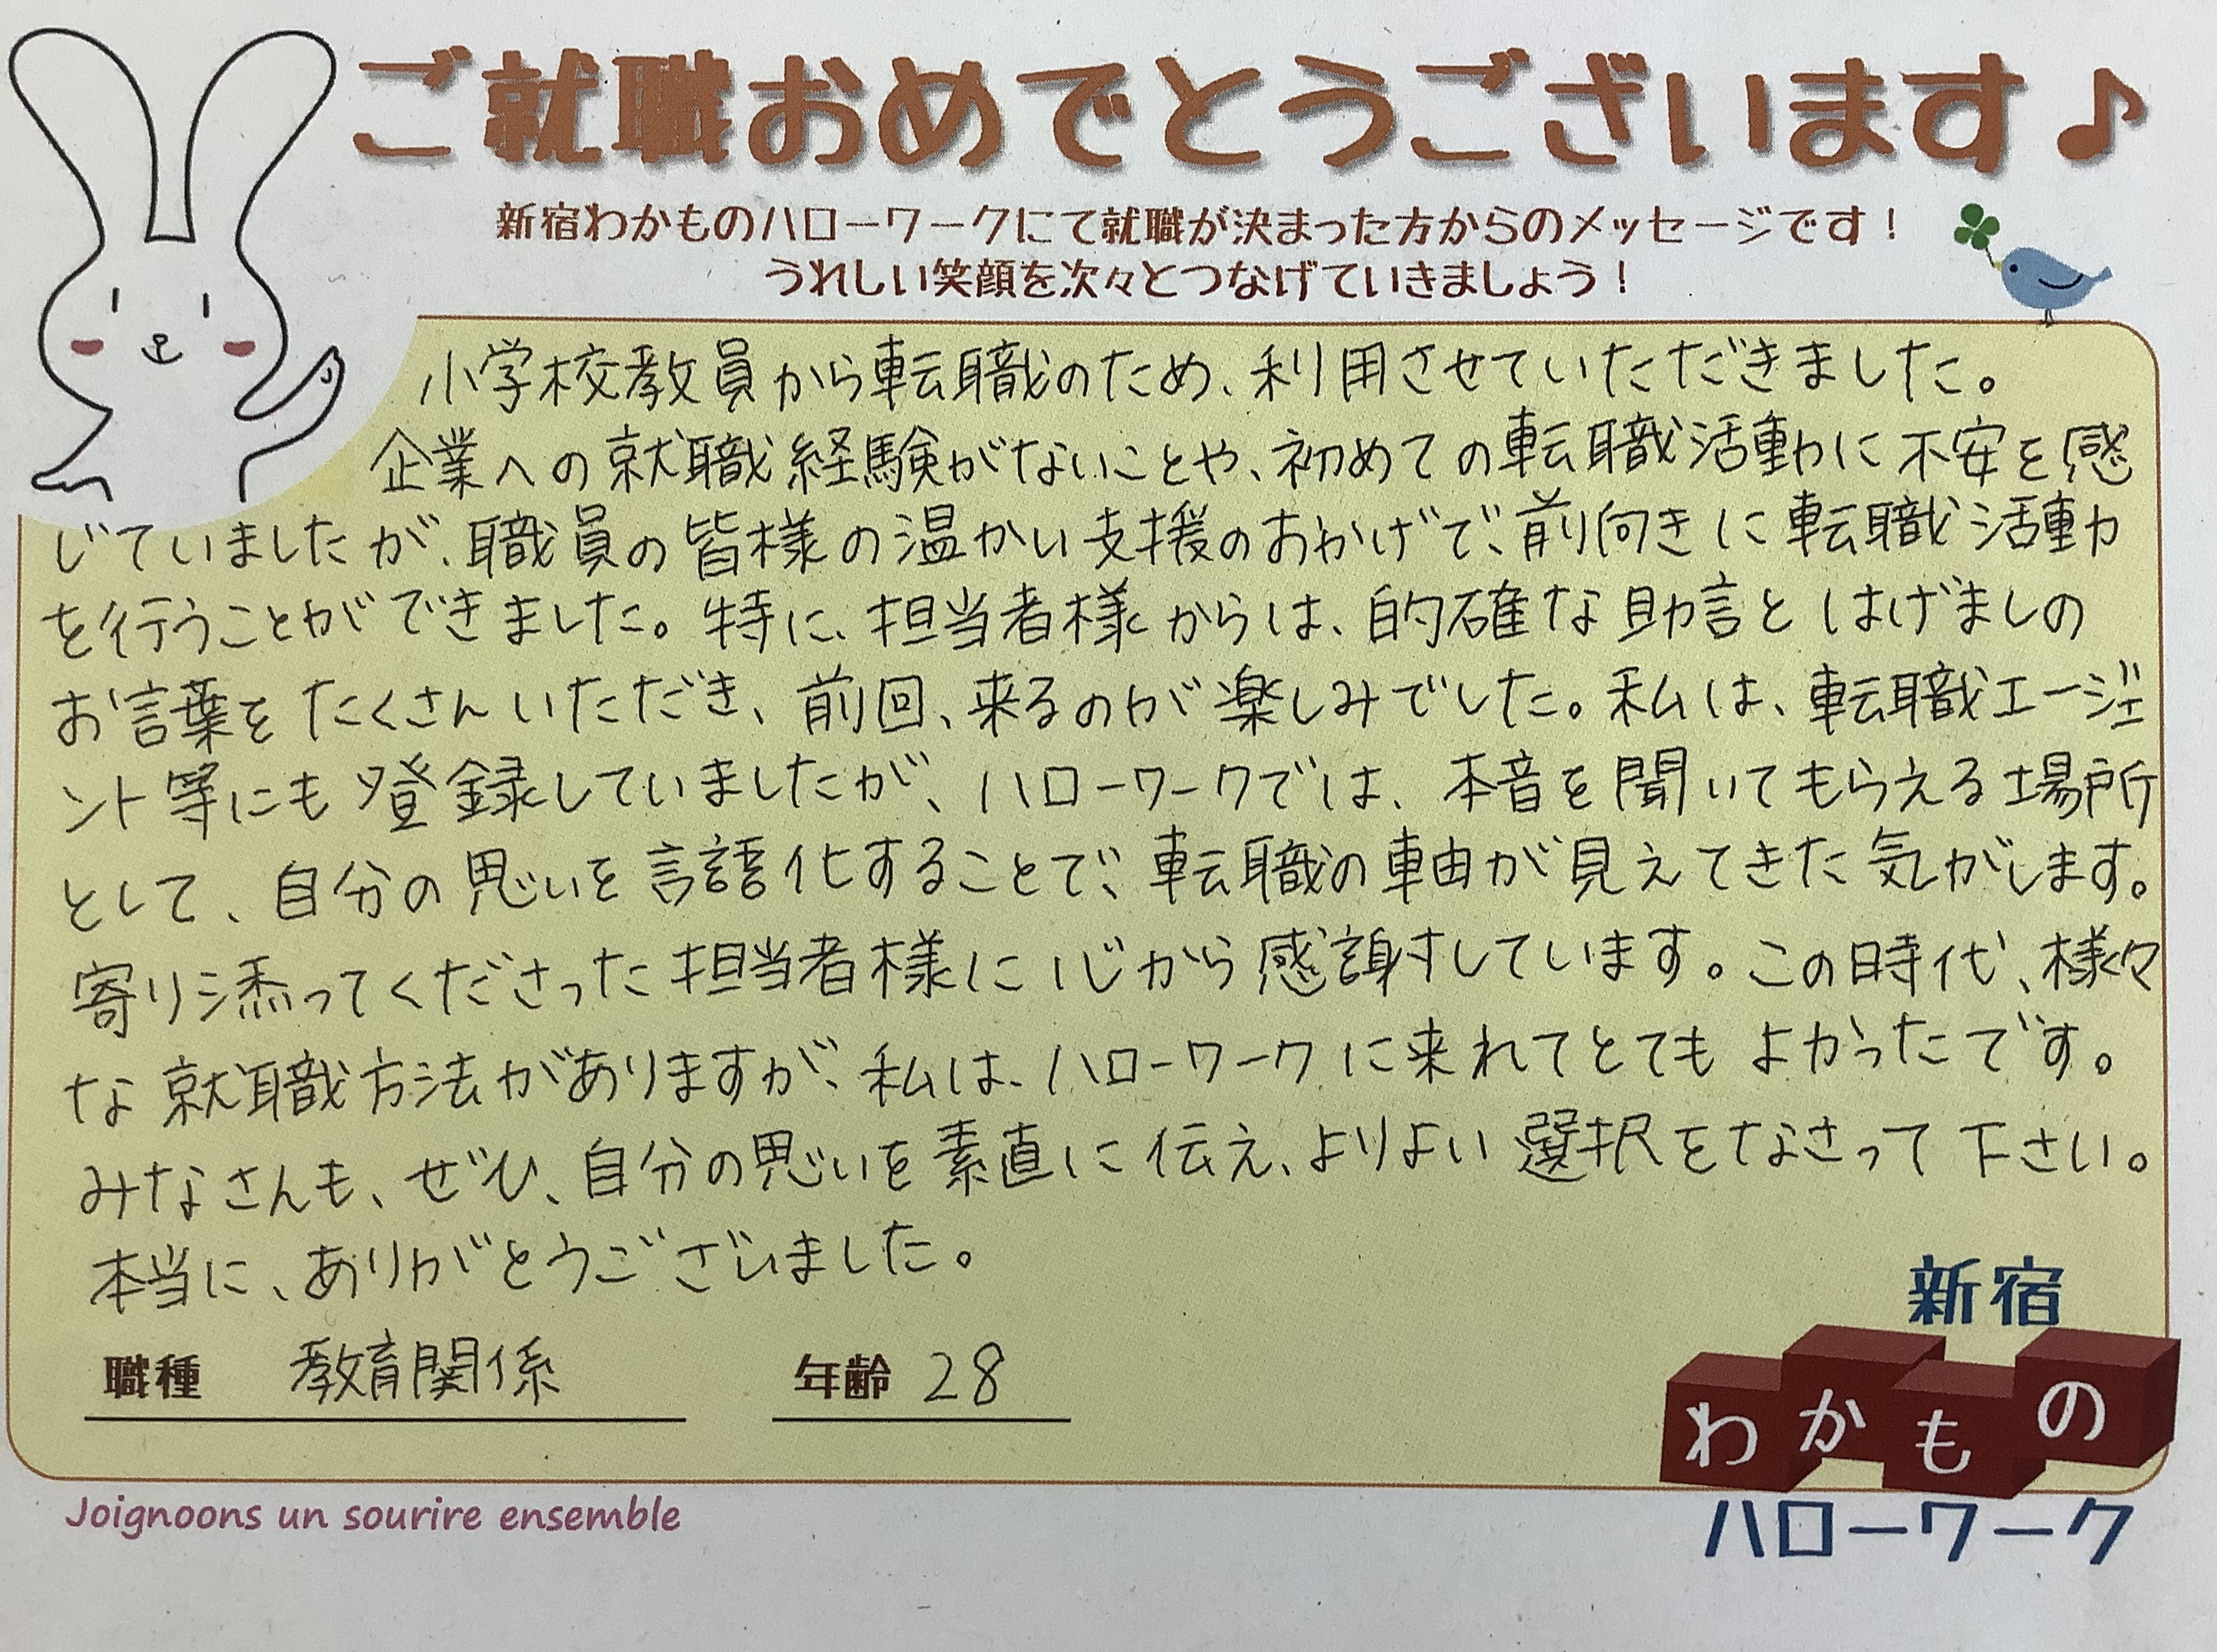 ご就職おめでとうございます♪
新宿わかものハローワークにて就職が決まった方からのメッセージです！
うれしい笑顔を次々とつなげていきましょう！
小学校教員から転職のため、利用させていただきました。
企業への就職経験がないことや、初めての転職活動に不安を感
じていましたが、職員の皆様の温かい支援のおかげで、前向きに転職活動
を行うことができました。特に、担当者様からは、的確な助言とはげましの
お言葉をたくさんいただき、前回、来るのが楽しみでした。私は、転職エージェ
ント等にも登録していましたが、ハローワークでは、本音を聞いてもらえる場所
として、自分の思いを言語化することで、転職の軸が見えてきた気がします。
寄り添ってくださった担当者様に心から感謝しています。この時代、様々
な就職方法がありますが、私は、ハローワークに来れてとてもよかったです。
みなさんも、ぜひ、自分の思いを素直に伝え、よりよい選択をなさって下さい。
本当に、ありがとうございました。
職種 教育関係 年齢 28
新宿
わかもの
ハローワーク
Joignoons un sourire ensemble